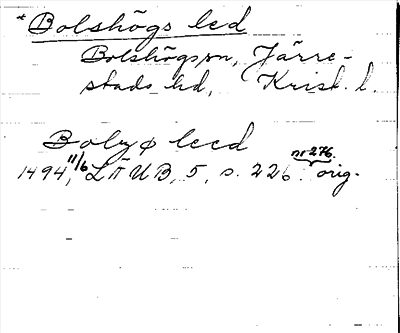 * Bolshögs led
Bolshögssn, Järre-
stads hd, Krist. l.
Bolyø leed
nr 276.
1494, 11/6 LÄUB, 5, s. 226. orig.